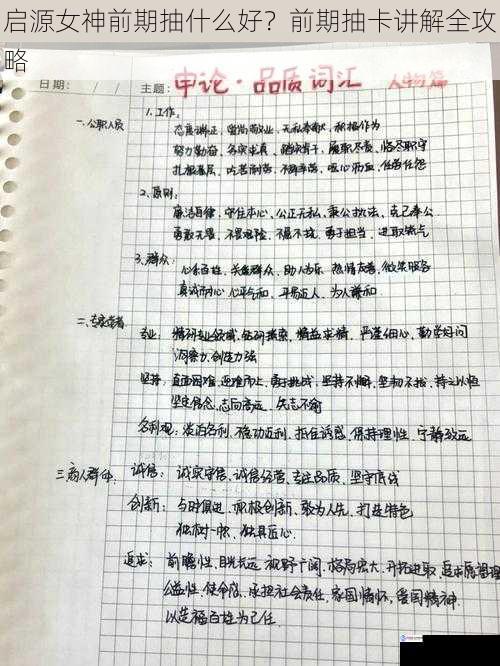 启源女神前期抽什么好？前期抽卡讲解全攻
略
日期： / / 主题：申论·品质词汇 人物篇
一.公职人员 1.工作：
态度端正，爱岗敬业，无私奉献，积极作为
努力勤奋，务实求真，踏实肯干，履职尽责，恪尽职守
扎根基层，吃苦耐劳，不辞辛劳，呕心沥血，任劳任怨
2.原则：
廉洁自律，守住本心，公正无私，秉公执法，克己奉公
勇敢无畏，不畏艰险，不屈不挠，勇于担当，进取锐气
3.群众：
心系百姓，关爱群众，助人为乐，热情友善，微笑服务
真诚耐心，心平气和，平易近人，为人谦和
二、专家学者
专业：精研专业领域，钻研探索，精益求精，严谨细心，勤学好问
洞察力，创造力强
坚持：直面困难，迎难而上，勇于挑战，坚持不懈，坚韧不拔，持之以恒
坚定信念，志向高远，矢志不渝
名利观：淡泊名利，急功近利，抵住诱惑，保持理性，宁静致远
三.商人群体
诚信：诚实守信，诚信经营，专注品质，坚守底线
创新：与时俱进，积极创新，敢为人先，打造特色
独树一帜，独具匠心.
追求：前瞻性，目光长远，视野广阔，格局宏大，开拓进取，追求
公益性，使命感，承担社会责任，家国情怀，爱国精神.
以造福百姓为己任.